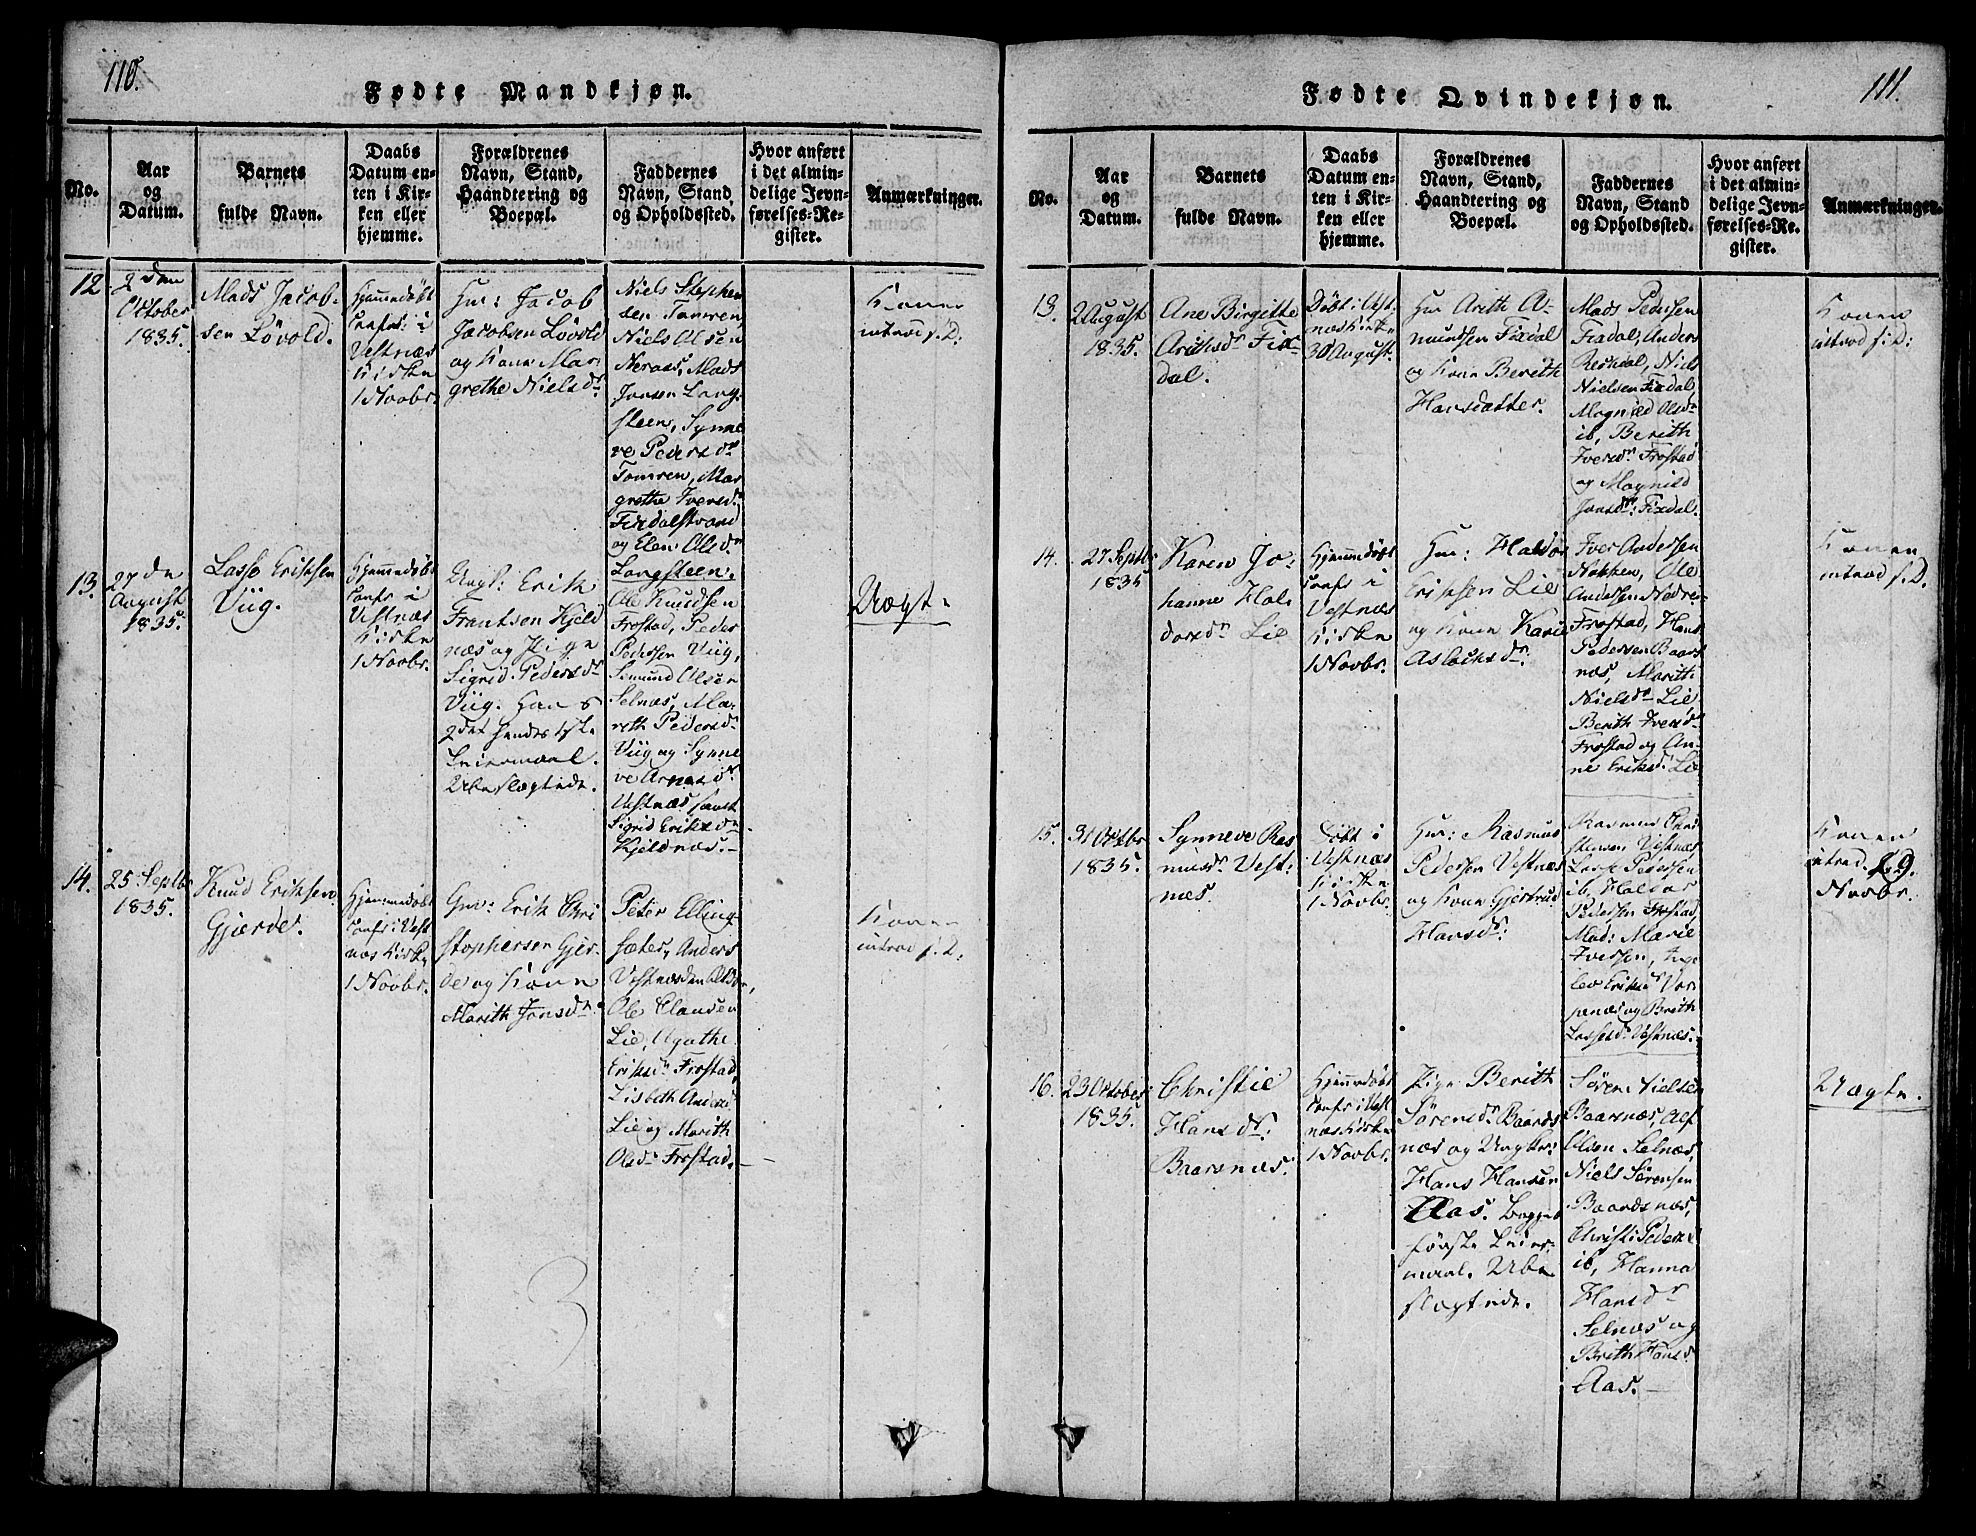 110.
Fødte Mandkjøn.
No.
Aar
og
Datum.
Barnets
fulde Navn.
Daabs
Datum en-
ten i Kir-
ken eller
hjemme.
Forældrenes
Navn, Stand,
Haandtering og
Boepæl.
Faddernes
Navn, Stand
og Opholdssted.
Hvor anført
i det almin-
delige Jevn-
førelses-Re-
gister.
Anmærkninger.
12
2den
October
1835.
Mads Jacob-
sen Løvold.
Hjemmedøbt
Confr: i
Vestnæs
Kirke
1 Novbr.
Gm: Jacob
Jacobsen Løvold
og Kone Mar-
grethe Nielsdr
Niels Stephen
sen Tomren,
Niels Olsen
Neraas, Mads
Jonsen Lang-
steen, Synne
ve Pedersdr
Tomren, Mar
grethe Iversdr
Fixdalstrand
og Elen Olsdr
Langsteen.
Konen
introd. s. D.
13.
27de
August
1835.
Lasse Eriksen
Viig.
Hjemmedøbt
Confr i
Vestnæs
Kirke
1 Novbr.
Ungk: Erik
Frantsen Kjeld
næs og Pige
Sigrid Pedersdr
Viig. Hans
2det hendes 1ste
Leiermaal.
Ubeslægtede.
Ole Knudsen
Frostad, Peder
Pedersen Viig,
Semund Olsen
Selnæs, Ma-
reth Pedersdr
Viig og Synne
ve Arnesdr
Vestnæs samt
Sigrid Eriksdr
Kjeldnæs.
Uægte
14.
25 Septbr
1835.
Knud Eriksen
Gjærde.
Hjemmedøbt
Confr i Vest
næs Kirke
1 Novbr.
Gm: Erik Chri
stophersen Gjer-
de og Kone
Marith Jonsdr
Peter Elling
sæter, Anders
Ole Clausen
Lie, Agathe
Eriksdr Frostad,
Lisbeth Andersd.
Lie og Marith
Olsdr Frostad.
Konen
introd s. D.
111.
Fødte Qvindekjøn.
No.
Aar
og
Datum.
Barnets
fulde Navn.
Daabs
Datum en-
ten i Kir-
ken eller
hjemme.
Forældrenes
Navn, Stand,
Haandtering og
Boepæl.
Faddernes
Navn, Stand
og Opholdssted.
Hvor anført
i det almin-
delige Jevn-
førelses-Re-
gister.
Anmærkninger.
13.
2 August
1835.
Ane Birgitte
Arithsdr Fix-
dal.
Døbt i Vest-
næs Kirke
30 August.
Gm Arith A-
mundsen Fixdal
og Kone Berith
Hansdatter.
Mads Pedersen
Fixdal, Anders
Niels
Nielsen Fixdal
Magnild Olsdr
ib, Berith
Iversdr Frostad
og Magnild
Jonsdr: Fixdal.
Konen
introd s. D:
14.
27 Septbr
1835
Karen Jo-
hanne Hal-
dorsdr Lie
Hjemmedøbt
Confr i
Vestnæs
Kirke
1 Novbr.
Gm: Haldor
Eriksen Lie
og Kone Karie
Aslaksdr.
Iver Andersen
Nakken, Ole
Andersen Nedre-
Frostad, Hans
Pedersen Baars
næs, Marith
Nielsdr Lie
Berith Iversdr
Frostad og An-
ne Eriksd. Lie
Konen
introd s. D.
15.
31 Octbr
1835.
Synneve Ras
musdr Vest-
næs.
Døbt i
Vestnæs
Kirke
1 Novbr.
Gm: Rasmus
Pedersen Vestnæs
og Kone Gjertrud
Hansdr:
Rasmus Chri
stensen Vestnæs
Lasse Pedersen
ib, Haldor
Pedersen Frostad,
Mad: Marie
Iversen, Inge
lev Eriksd Vor
penæs og Brith
Lassesdr Vestnæs.
Konen
introd. 29
Novbr.
16.
23 October
1835.
Christie
Hansdr.
Baarsnæs.
Hjemmedøbt
Confr i Vest
næs Kirke
1 Novbr.
Pige Berith
Sørensdr Baards
næs og Ungkr:
Hans Hansen
Aas. Begges
første Leier-
maal. Ube
slægtede.
Søren Nielsen
Baarsnæs,
Olsen Selnæs,
Niels Sørensen
Baardsnæs,
Christi Pedersd
ib, Hanna
Hansdr
Selnæs og
Brith Hansd.
Aas.
Uægte.